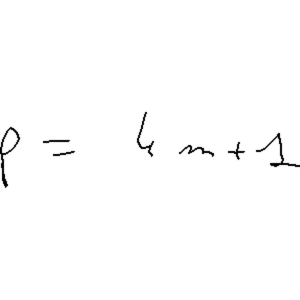 p = 4 m + 1